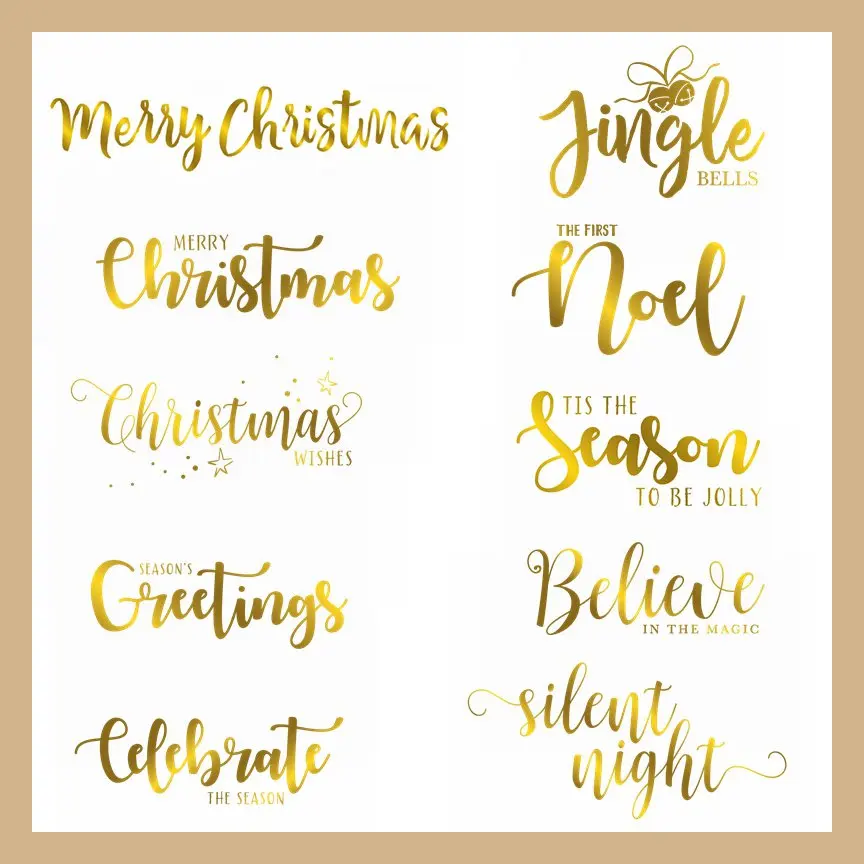 Merry Christmas
MERRY
Christmas
Christmas
WISHES
SEASON'S
Greetings
Celebrate
THE SEASON
Jingle
BELLS
THE FIRST
Noel
TIS THE
Season
TO BE JOLLY
Believe
IN THE MAGIC
silent
night